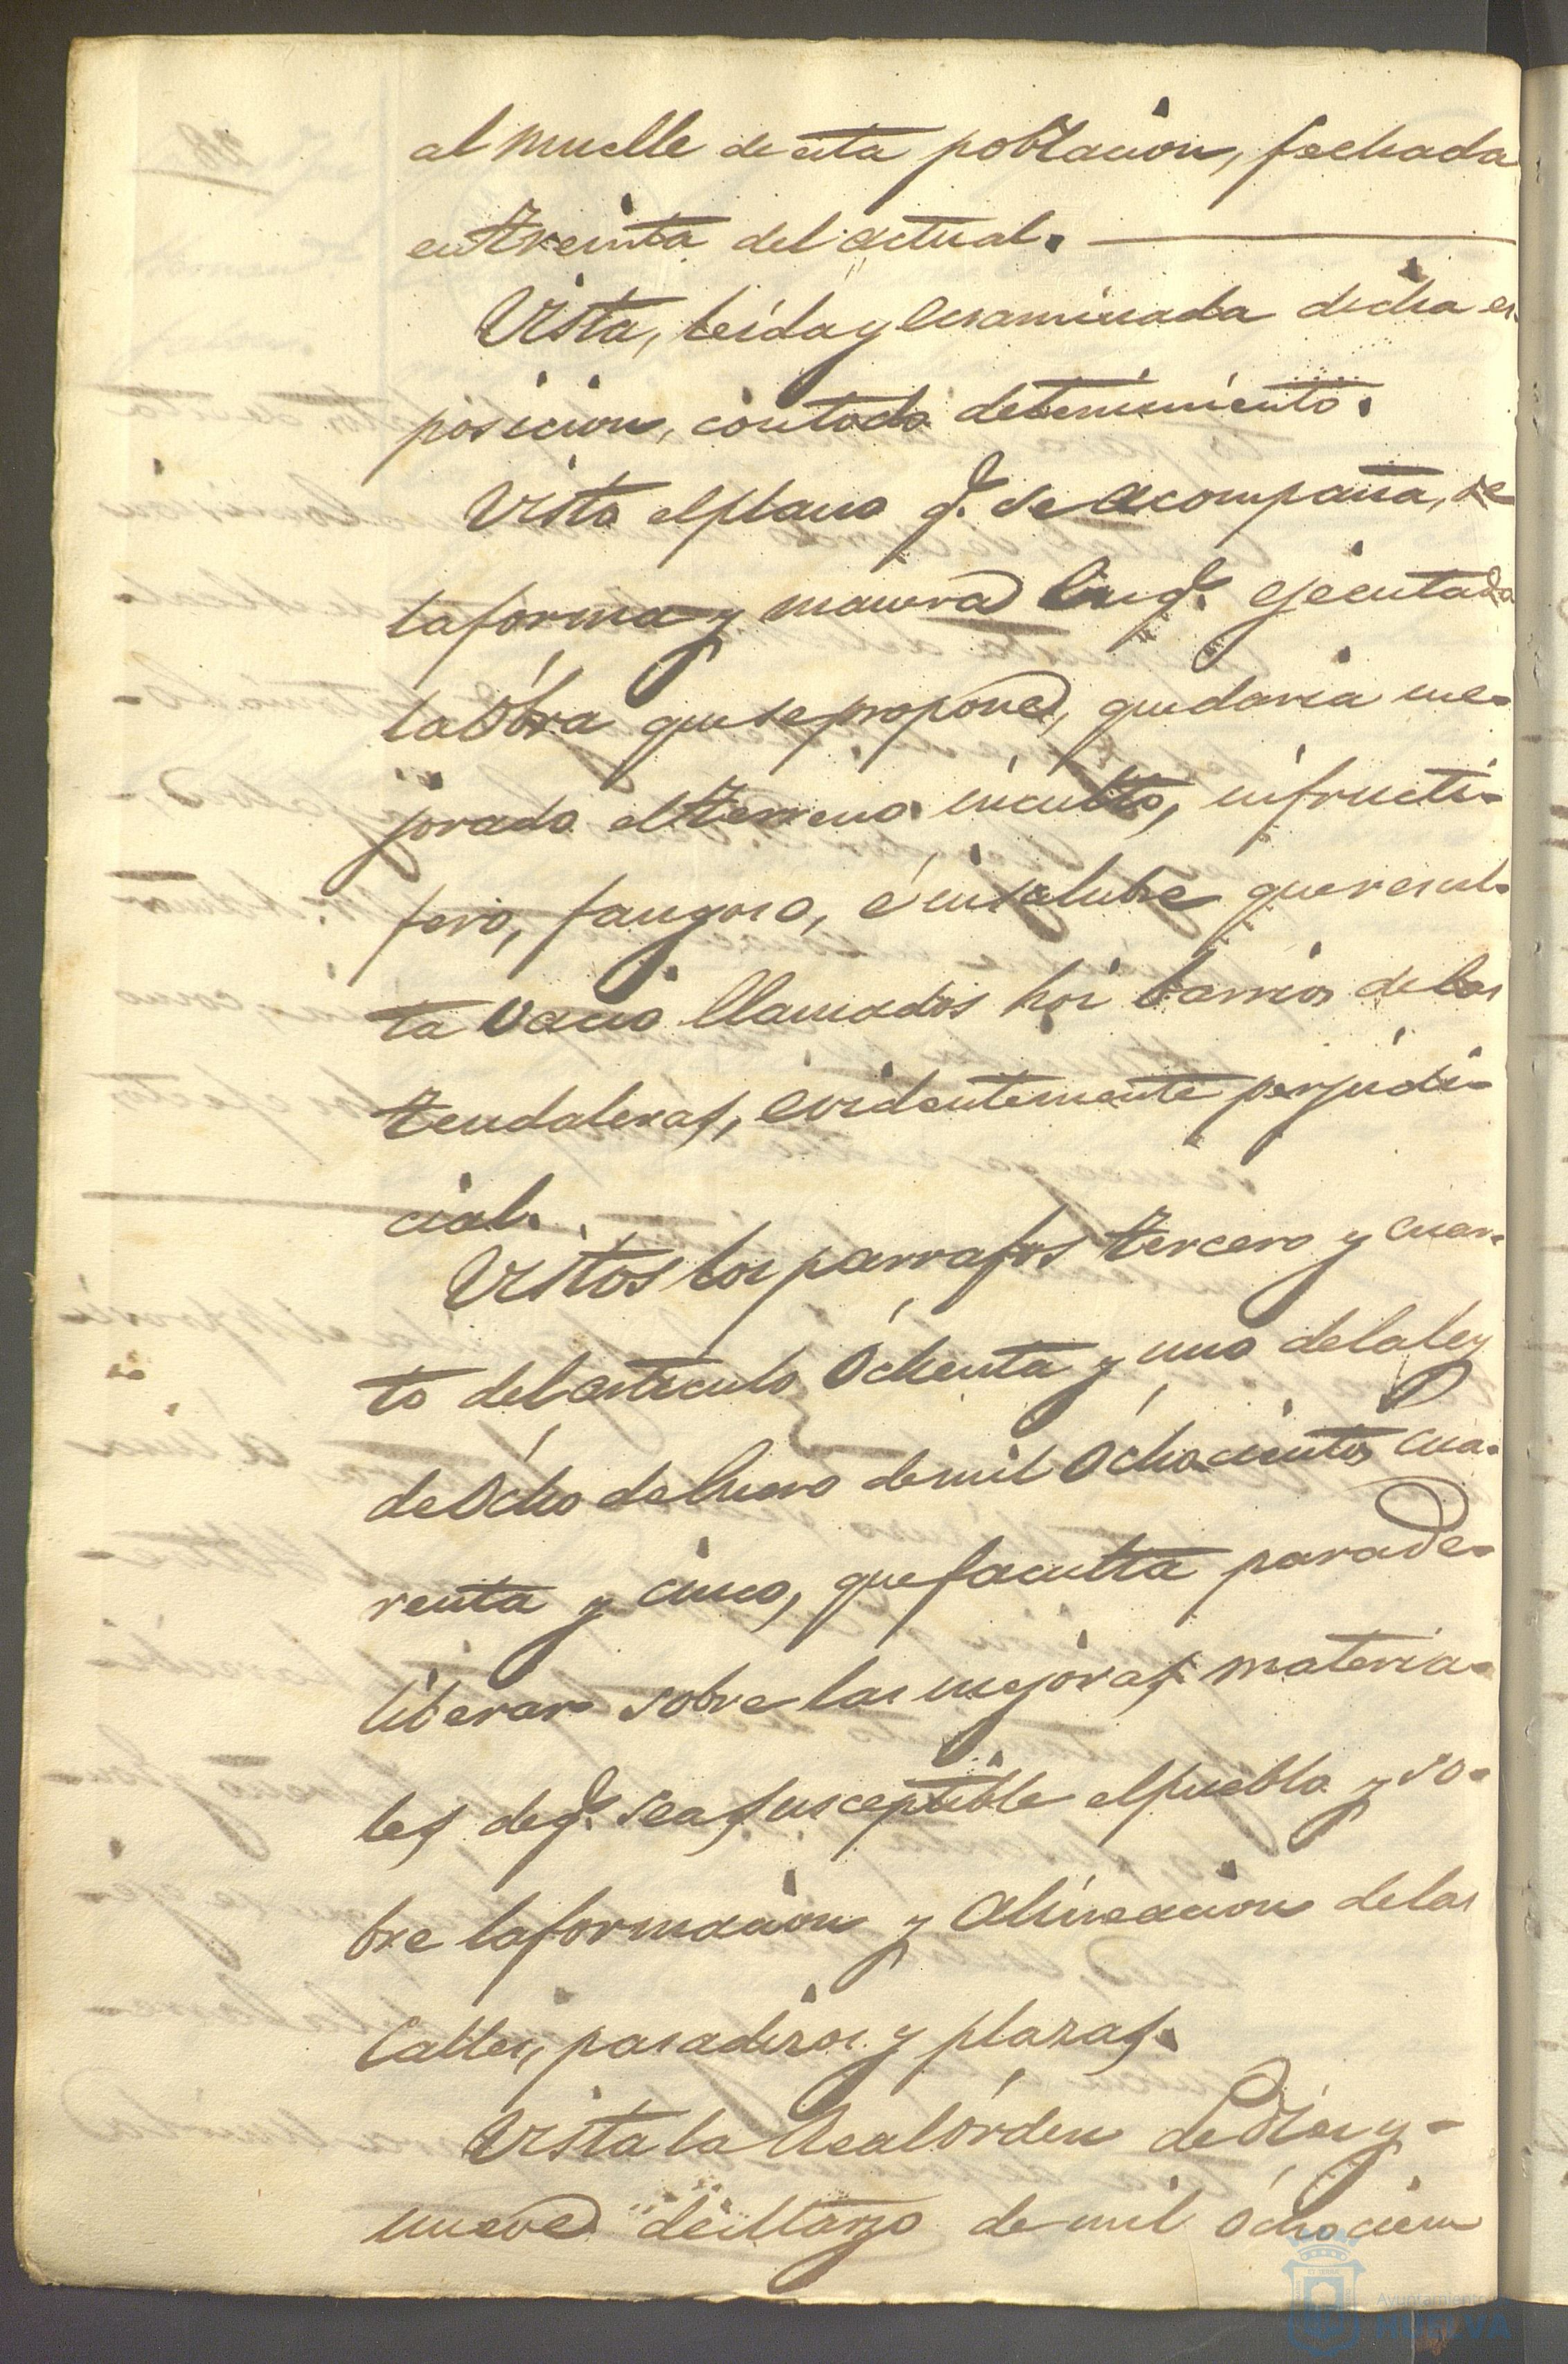 al muelle de esta poblacion, fechada
en treinta del actual.
Vista, leida y ecsaminada dicha es-
posicion, con todo detenimiento.
Visto el plano q.e se acompaña, de
la forma y manera en q.e ejecutada
la Obra que se propone, quedaria me-
jorado el terreno inculto, infructi-
fero, fangoso, é insalubre que resul-
ta vacio llamados hoi barrios de las
tendaleras, evidentemente perjudi-
cial.
Vistos los parrafos tercero y cuar-
to del articulo Ochenta y uno de la ley
de Ocho de Enero de mil Ochocientos cua-
renta y cinco, que faculta para de-
liberar sobre las mejoras materia-
les de q.e sea susceptible el pueblo y so-
bre la formacion y alineacion de las
Calles, pasadizos y plazas.
Vista la Real órden de Diez y-
nueve de Marzo de mil Ochocien
Ayuntamiento
HUELVA